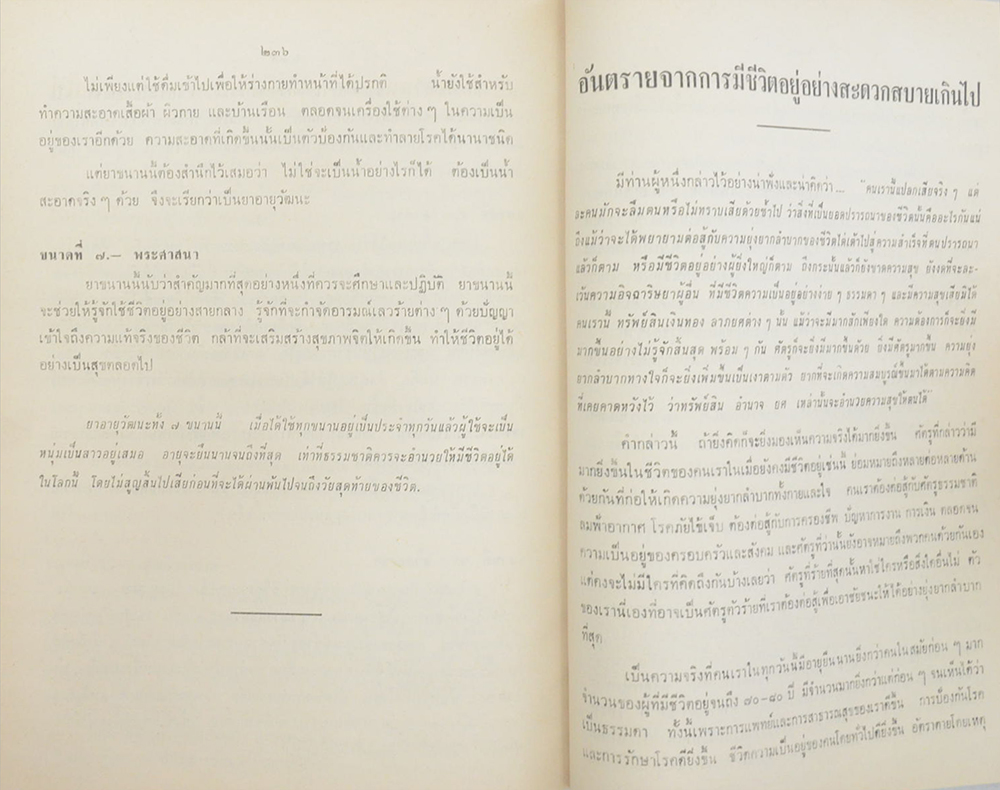 ๒๓๖
ไม่เพียงแต่ใช้ดื่มเข้าไปเพื่อให้ร่างกายทำหน้าที่ได้ปรกติ น้ำยังใช้สำหรับ
ทำความสะอาดเสื้อผ้า ผิวกาย และบ้านเรือน ตลอดจนเครื่องใช้ต่าง ๆ ในความเป็น
อยู่ของเราอีกด้วย ความสะอาดที่เกิดขึ้นนั้นเป็นตัวป้องกันและทำลายโรคได้นานาชนิด
แต่ยาขนานนี้ต้องสำนึกไว้เสมอว่า ไม่ใช่จะเป็นน้ำอย่างไรก็ได้ ต้องเป็นน้ำ
สะอาดจริง ๆ ด้วย จึงจะเรียกว่าเป็นยาอายุวัฒนะ
ขนาดที่ ๗.— พระศาสนา
ยาขนานนี้นับว่าสำคัญมากที่สุดอย่างหนึ่งที่ควรจะศึกษาและปฏิบัติ ยาขนานนี้
จะช่วยให้รู้จักใช้ชีวิตอยู่อย่างสายกลาง รู้จักที่จะกำจัดอารมณ์เลวร้ายต่าง ๆ ด้วยปัญญา
เข้าใจถึงความแท้จริงของชีวิต กล้าที่จะเสริมสร้างสุขภาพจิตให้เกิดขึ้น ทำให้ชีวิตอยู่ได้
อย่างเป็นสุขตลอดไป
ยาอายุวัฒนะทั้ง ๗ ขนานนี้ เมื่อได้ใช้ทุกขนานอยู่เป็นประจำทุกวันแล้วผู้ใช้จะเป็น
หนุ่มเป็นสาวอยู่เสมอ อายุจะยืนนานจนถึงที่สุด เท่าที่ธรรมชาติควรจะอำนวยให้มีชีวิตอยู่ได้
ในโลกนี้ โดยไม่สูญสิ้นไปเสียก่อนที่จะได้ผ่านพ้นไปจนถึงวัยสุดท้ายของชีวิต.
อันตรายจากการมีชีวิตอยู่อย่างสะดวกสบายเกินไป
มีท่านผู้หนึ่งกล่าวไว้อย่างน่าฟังและน่าคิดว่า... "คนเรานี้แปลกเสียจริง ๆ แต่
ละคนมักจะลืมตนหรือไม่ทราบเสียด้วยซ้ำไป ว่าสิ่งที่เป็นยอดปรารถนาของชีวิตนั้นคืออะไรกันแน่
ถึงแม้ว่าจะได้พยายามต่อสู้กับความยุ่งยากลำบากของชีวิตได้เต้าไปสู่ความสำเร็จที่ตนปรารถนา
แล้วก็ตาม หรือมีชีวิตอยู่อย่างผู้ยิ่งใหญ่ก็ตาม ถึงกระนั้นแล้วก็ยังขาดความสุข ยังงดที่จะละ-
เว้นความอิจฉาริษยาผู้อื่น ที่มีชีวิตความเป็นอยู่อย่างง่าย ๆ ธรรมดา ๆ และมีความสุขเสียมิได้
คนเรานี้ ทรัพย์สินเงินทอง ลาภยศต่าง ๆ นั้น แม้ว่าจะมีมากสักเพียงใด ความต้องการก็จะยิ่งมี
มากขึ้นอย่างไม่รู้จักสิ้นสุด พร้อม ๆ กัน ศัตรูก็จะยิ่งมีมากขึ้นด้วย ยิ่งมีศัตรูมากขึ้น ความยุ่ง
ยากลำบากทางใจก็จะยิ่งเพิ่มขึ้นเป็นเงาตามตัว ยากที่จะเกิดความสมบูรณ์ขึ้นมาได้ตามความคิด
ที่เคยคาดหวังไว้ ว่าทรัพย์สิน อำนาจ ยศ เหล่านั้นจะอำนวยความสุขให้ตนได้"
คำกล่าวนี้ ถ้ายิ่งคิดก็จะยิ่งมองเห็นความจริงได้มากยิ่งขึ้น ศัตรูที่กล่าวว่ามี
มากยิ่งขึ้นในชีวิตของคนเราในเมื่อยังคงมีชีวิตอยู่เช่นนี้ ย่อมหมายถึงหลายต่อหลายด้าน
ด้วยกันที่ก่อให้เกิดความยุ่งยากลำบากทั้งกายและใจ คนเราต้องต่อสู้กับศัตรูธรรมชาติ
ลมฟ้าอากาศ โรคภัยไข้เจ็บ ต้องต่อสู้กับการครองชีพ ปัญหาการงาน การเงิน ตลอดจน
ความเป็นอยู่ของครอบครัวและสังคม และศัตรูที่ว่านั้นยังอาจหมายถึงพวกคนด้วยกันเอง
แต่คงจะไม่มีใครที่คิดถึงกันบ้างเลยว่า ศัตรูที่ร้ายที่สุดนั้นหาใช่ใครหรือสิ่งใดอื่นไม่ ตัว
ของเรานี่เองที่อาจเป็นศัตรูตัวร้ายที่เราต้องต่อสู้เพื่อเอาชัยชนะให้ได้อย่างยุ่งยากลำบาก
ที่สุด
เป็นความจริงที่คนเราในทุกวันนี้มีอายุยืนนานยิ่งกว่าคนในสมัยก่อน ๆ มาก
จำนวนของผู้ที่มีชีวิตอยู่จนถึง ๗๐-๘๐ ปี มีจำนวนมากยิ่งกว่าแต่ก่อน ๆ จนเห็นได้ว่า
เป็นธรรมดา ทั้งนี้เพราะการแพทย์และการสาธารณสุขของเราดีขึ้น การป้องกันโรค
และการรักษาโรคดียิ่งขึ้น ชีวิตความเป็นอยู่ของคนโดยทั่วไปดียิ่งขึ้น อัตราตายโดยเหตุ